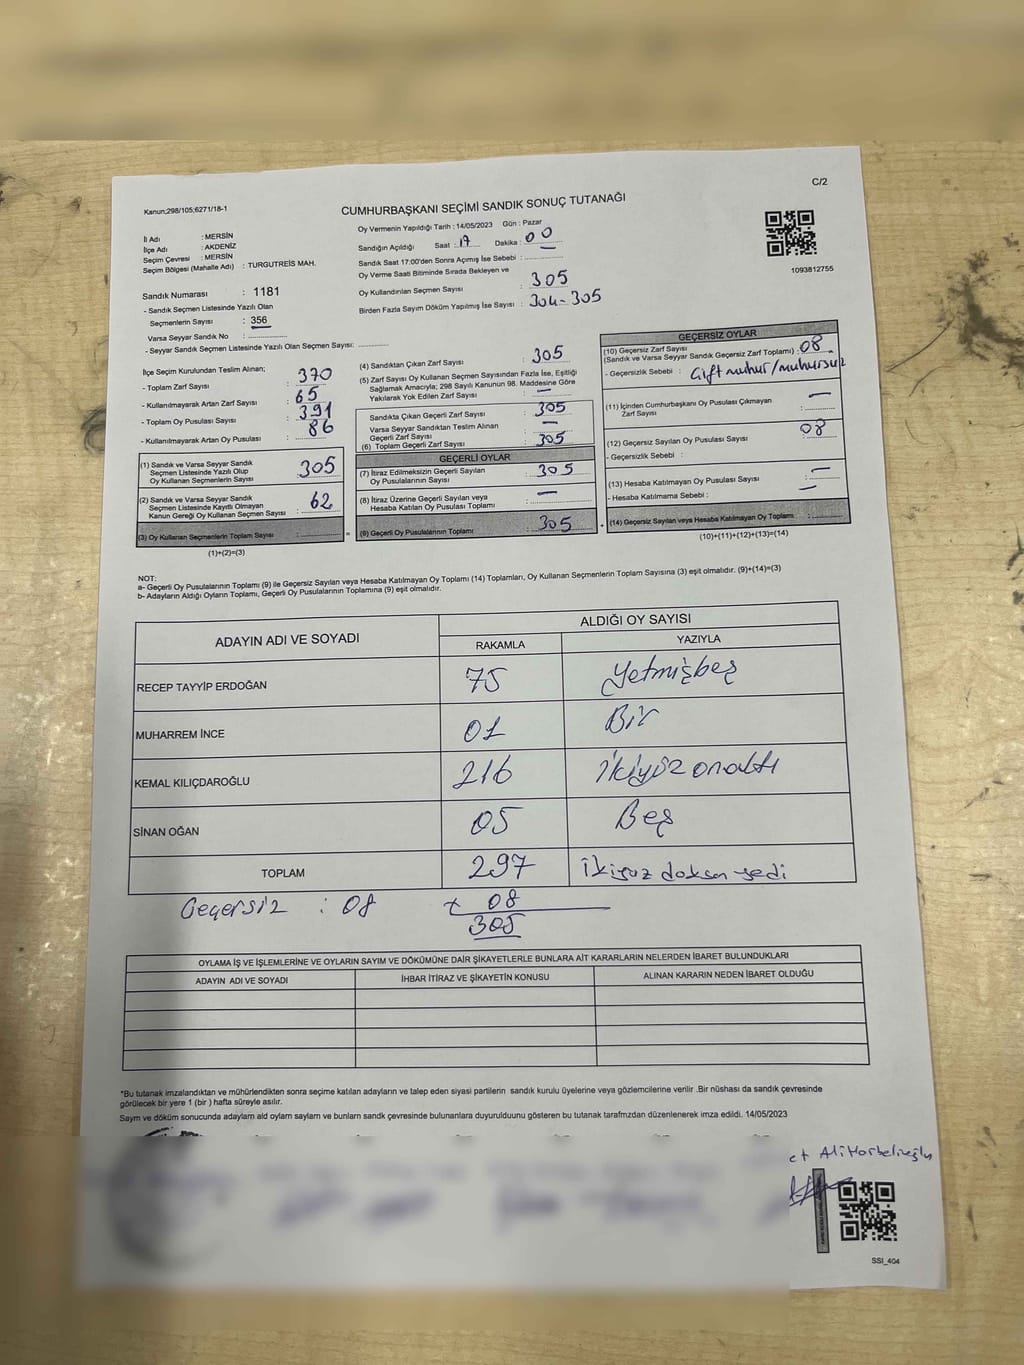 C/2
Kanun;298/105;6271/18-1
CUMHURBAŞKANI SEÇİMİ SANDIK SONUÇ TUTANAĞI
1093812755
İli Adı : MERSİN
İlçe Adı : AKDENİZ
Seçim Çevresi : MERSİN
Seçim Bölgesi (Mahalle Adı) : TURGUTREİS MAH.
Sandık Numarası : 1181
- Sandık Seçmen Listesinde Yazılı Olan
Seçmenlerin Sayısı : 356
Varsa Seyyar Sandık No :
- Seyyar Sandık Seçmen Listesinde Yazılı Olan Seçmen Sayısı:
Oy Vermenin Yapıldığı Tarih : 14/05/2023 Gün : Pazar
Sandığın Açıldığı Saat : 17 Dakika : 00
Sandık Saat 17:00'den Sonra Açımış İse Sebebi :
Oy Verme Saati Bitiminde Sırada Bekleyen ve
Oy Kullandırılan Seçmen Sayısı : 305
Birden Fazla Sayım Döküm Yapılmış İse Sayısı : 304-305
İlçe Seçim Kurulundan Teslim Alınan;
- Toplam Zarf Sayısı : 370
- Kullanılmayarak Artan Zarf Sayısı : 65
- Toplam Oy Pusulası Sayısı : 391
- Kullanılmayarak Artan Oy Pusulası : 86
(1) Sandık ve Varsa Seyyar Sandık
Seçmen Listesinde Yazılı Olup
Oy Kullanan Seçmenlerin Sayısı : 305
(2) Sandık ve Varsa Seyyar Sandık
Seçmen Listesinde Kayıtlı Olmayan
Kanun Gereği Oy Kullanan Seçmen Sayısı : 62
(3) Oy Kullanan Seçmenlerin Toplam Sayısı :
(1)+(2)=(3)
(4) Sandıktan Çıkan Zarf Sayısı : 305
(5) Zarf Sayısı Oy Kullanan Seçmen Sayısından Fazla İse, Eşitliği
Sağlamak Amacıyla; 298 Sayılı Kanunun 98. Maddesine Göre
Yakılarak Yok Edilen Zarf Sayısı : —
Sandıkta Çıkan Geçerli Zarf Sayısı : 305
Varsa Seyyar Sandıktan Teslim Alınan
Geçerli Zarf Sayısı : —
(6) Toplam Geçerli Zarf Sayısı : 305
GEÇERLİ OYLAR
(7) İtiraz Edilmeksizin Geçerli Sayılan
Oy Pusulalarının Sayısı : 305
(8) İtiraz Üzerine Geçerli Sayılan veya
Hesaba Katılan Oy Pusulası Toplamı : —
= (9) Geçerli Oy Pusulalarının Toplamı : 305
GEÇERSİZ OYLAR
(10) Geçersiz Zarf Sayısı
(Sandık ve Varsa Seyyar Sandık Geçersiz Zarf Toplamı) : 08
- Geçersizlik Sebebi : Çift mühür/mühürsüz
(11) İçinden Cumhurbaşkanı Oy Pusulası Çıkmayan
Zarf Sayısı : —
(12) Geçersiz Sayılan Oy Pusulası Sayısı : 08
- Geçersizlik Sebebi :
(13) Hesaba Katılmayan Oy Pusulası Sayısı : —
- Hesaba Katılmama Sebebi : —
+ (14) Geçersiz Sayılan veya Hesaba Katılmayan Oy Toplamı :
(10)+(11)+(12)+(13)=(14)
NOT:
a- Geçerli Oy Pusulalarının Toplamı (9) ile Geçersiz Sayılan veya Hesaba Katılmayan Oy Toplamı (14) Toplamları, Oy Kullanan Seçmenlerin Toplam Sayısına (3) eşit olmalıdır. (9)+(14)=(3)
b- Adayların Aldığı Oyların Toplamı, Geçerli Oy Pusulalarının Toplamına (9) eşit olmalıdır.
ADAYIN ADI VE SOYADI
ALDIĞI OY SAYISI
RAKAMLA YAZIYLA
RECEP TAYYİP ERDOĞAN 75 Yetmişbeş
MUHARREM İNCE 01 Bir
KEMAL KILIÇDAROĞLU 216 ikiyüz onaltı
SİNAN OĞAN 05 Beş
TOPLAM 297 ikiyuz doksan yedi
Geçersiz : 08 + 08
305
OYLAMA İŞ VE İŞLEMLERİNE VE OYLARIN SAYIM VE DÖKÜMÜNE DAİR ŞİKAYETLERLE BUNLARA AİT KARARLARIN NELERDEN İBARET BULUNDUKLARI
ADAYIN ADI VE SOYADI İHBAR İTİRAZ VE ŞİKAYETİN KONUSU ALINAN KARARIN NEDEN İBARET OLDUĞU
*Bu tutanak imzalandıktan ve mühürlendikten sonra seçime katılan adayların ve talep eden siyasi partilerin sandık kurulu üyelerine veya gözlemcilerine verilir .Bir nüshası da sandık çevresinde
görülecek bir yere 1 (bir ) hafta süreyle asılır.
Sayım ve döküm sonucunda adayların ald oyların sayları ve bunların sandk çevresinde bulunanlara duyurulduunu gösteren bu tutanak tarafmzdan düzenlenerek imza edildi. 14/05/2023
SSİ_404